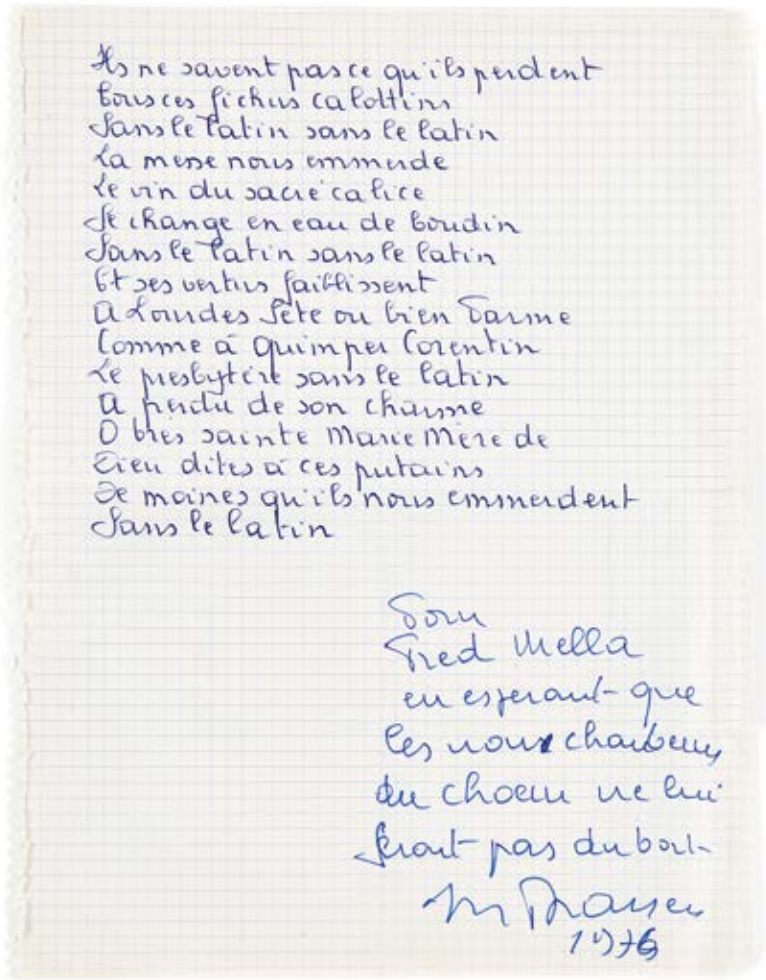 Ils ne savent pas ce qu'ils perdent
tous ces fichus calottins
Sans le latin sans le latin
La messe nous emmerde
Le vin du sacré calice
Se change en eau de boudin
Sans le latin sans le latin
Et ses vertus faiblissent
A Lourdes Sète ou bien Parme
Comme à Quimper Corentin
Le presbytère sans le latin
A perdu de son charme
O très sainte Marie Mère de
Dieu dites à ces putains
De moines qu'ils nous emmerdent
Sans le latin
Pour
Fred Mella
en esperant que
les nouveaux
du choeur ne lui
feront pas du tort
Brassens
1976